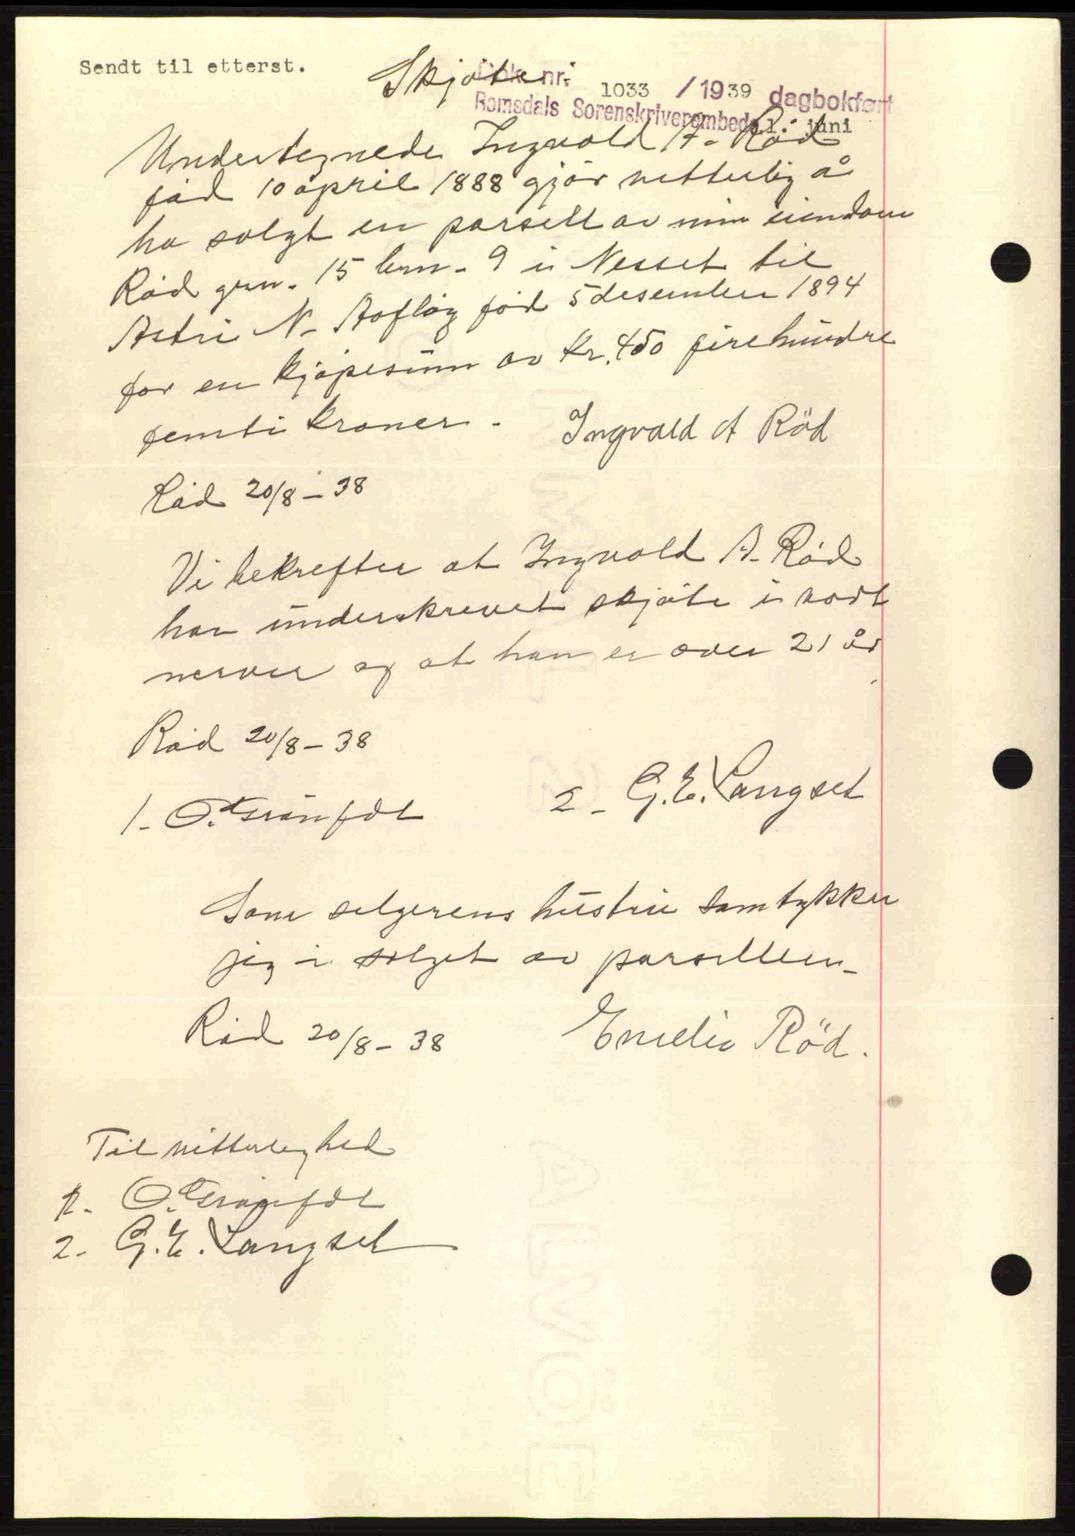 Sendt til etterst.
Skjøte:
Dok nr. 1033 / 1939 dagbokført
Romsdals Sorenskriverembede juni
Undertegnede Ingvald A. Rød
fød 10 april 1888 gjør vitterlig å
ha solgt en parsell av min eiendom
Rød grn. 15 brn. 9 i Nesset til
Astri N. Aafløg fød 5 desember 1894
for en kjøpesum av kr. 450 firehundre
femti kroner.
Ingvald A Rød
Rød 20/8 - 38
Vi bekrefter at Ingvald A. Rød
har underskrevet skjøte i vort
nerver og at han er over 21 år
Rød 20/8 - 38
1. O. Grønfdt
2. G. E. Langset
Som selgerens hustru samtykker
jeg i salget av parsellen.
Rød 20/8 - 38
Emelie Rød.
Til vitterlighed
1. O. Grønfdt
2. G. E. Langset
ALVÖE